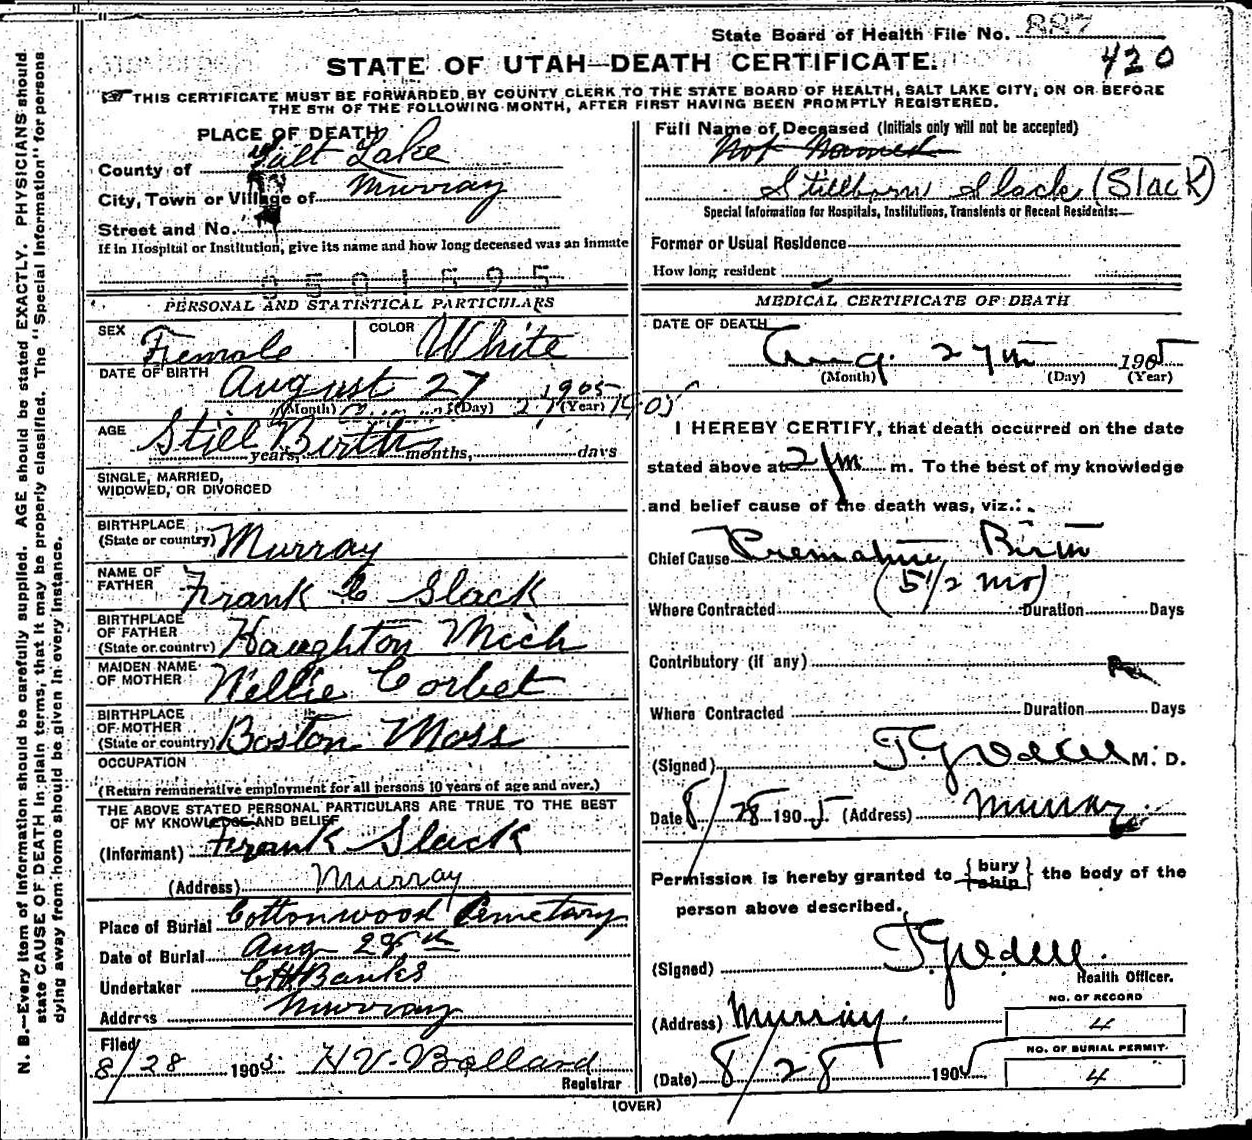 State Board of Health File No. 887
420
STATE OF UTAH—DEATH CERTIFICATE.
THIS CERTIFICATE MUST BE FORWARDED BY COUNTY CLERK TO THE STATE BOARD OF HEALTH, SALT LAKE CITY, ON OR BEFORE
THE 5TH OF THE FOLLOWING MONTH, AFTER FIRST HAVING BEEN PROMPTLY REGISTERED.
N. B.—Every item of information should be carefully supplied. AGE should be stated EXACTLY. PHYSICIANS should
state CAUSE OF DEATH in plain terms, that it may be properly classified. The "Special Information" for persons
dying away from home should be given in every instance.
PLACE OF DEATH
County of Salt Lake
City, Town or Village of Murray
Street and No.
If in Hospital or Institution, give its name and how long deceased was an inmate
0501595
PERSONAL AND STATISTICAL PARTICULARS
SEX Female COLOR White
DATE OF BIRTH August 27 1905
(Month) (Day) 27 (Year) 1905
AGE Still Birth
years, months, days
SINGLE, MARRIED,
WIDOWED, OR DIVORCED
BIRTHPLACE
(State or country) Murray
NAME OF
FATHER Frank Slack
BIRTHPLACE
OF FATHER
(State or country) Haughton Mich
MAIDEN NAME
OF MOTHER Nellie Corbet
BIRTHPLACE
OF MOTHER
(State or country) Boston Mass
OCCUPATION
(Return remunerative employment for all persons 10 years of age and over.)
THE ABOVE STATED PERSONAL PARTICULARS ARE TRUE TO THE BEST
OF MY KNOWLEDGE AND BELIEF
(Informant) Frank Slack
(Address) Murray
Place of Burial Cottonwood Cemetary
Date of Burial Aug 28th
Undertaker C H Banks
Address Murray
Filed
8/28 1905 H V Bolland
Registrar
Full Name of Deceased (Initials only will not be accepted)
Not Named
Stillborn Slack (Slack)
Special Information for Hospitals, Institutions, Transients or Recent Residents:—
Former or Usual Residence
How long resident
MEDICAL CERTIFICATE OF DEATH
DATE OF DEATH
Aug. 27th 1905
(Month) (Day) (Year)
I HEREBY CERTIFY, that death occurred on the date
stated above at 2 Pm m. To the best of my knowledge
and belief cause of the death was, viz.:
Chief Cause Premature Birth
(5 1/2 mo)
Where Contracted Duration Days
Contributory (if any)
Where Contracted Duration Days
(Signed) M. D.
Date 8/28 1905 (Address) Murray
Permission is hereby granted to {bury ship} the body of the
person above described.
(Signed)
Health Officer.
(Address) Murray.
(Date) 8/28 1905
NO. OF RECORD
4
NO. OF BURIAL PERMIT.
4
(OVER)